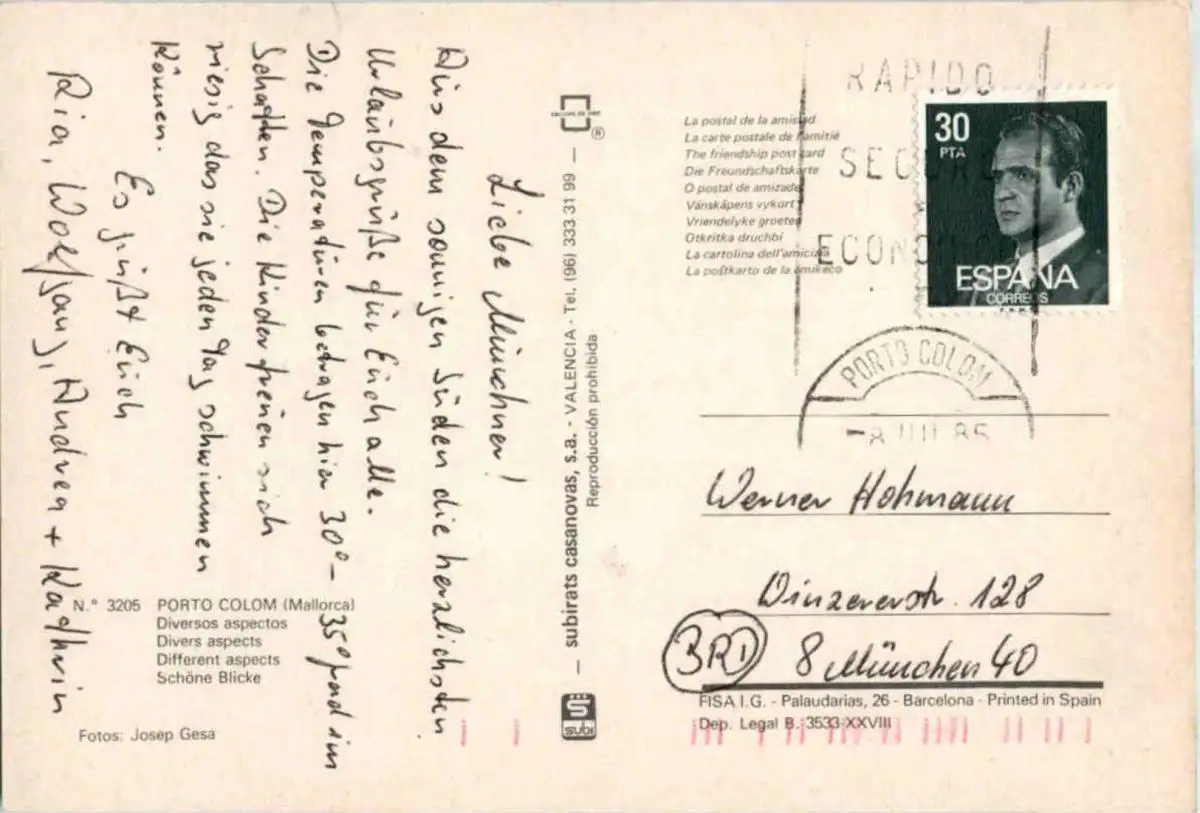 Liebe Münchner!
Aus dem sonnigen Süden die herzlichsten
Urlaubsgrüße für Euch alle.
Die Temperaturen betragen hier 30°–35° grad im
Schatten. Die Kinder freuen sich
riesig das sie jeden Tag schwimmen
können.
Es grüßt Euch
Ria, Wolfgang, Andrea + Kathrin
N.° 3205 PORTO COLOM (Mallorca)
Diversos aspectos
Divers aspects
Different aspects
Schöne Blicke
Fotos: Josep Gesa
®
— subirats casanovas, s.a. - VALENCIA - Tel. (96) 333 31 99 —
Reproducción prohibida
subi
La postal de la amistad
La carte postale de l'amitié
The friendship post card
Die Freundschaftskarte
O postal de amizade
Vänskäpens vykort
Vriendelyke groeten
Otkritka druchbi
La cartolina dell'amicizia
La poŝtkarto de la amikeco
RAPIDO
SEGURO
ECONO
30
PTA
ESPAÑA
CORREOS
PORTO COLOM
-8 VIII 85
Werner Hohmann
Winzererstr. 128
BRD 8 München 40
FISA I.G. - Palaudarias, 26 - Barcelona - Printed in Spain
Dep. Legal B. 3533-XXVIII